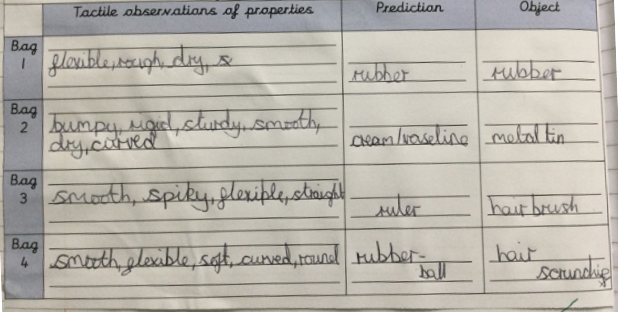 Tactile observations of properties Prediction Object
Bag 1 flexible, rough, dry, s rubber rubber
Bag 2 bumpy, rigid, sturdy, smooth, dry, curved cream/vaseline metal tin
Bag 3 smooth, spiky, flexible, straight ruler hair brush
Bag 4 smooth, flexible, soft, curved, round rubber- ball hair scrunchie